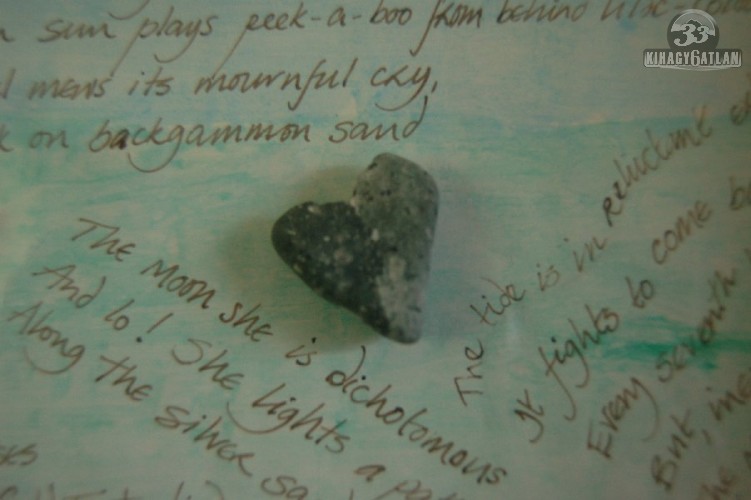 sun plays peek-a-boo from behind
mews its mournful cry,
on backgammon sand
The Moon she is dichotomous
And lo! She lights a
Along the silver
The tide is in reluctant
It fights to come
Every seventh
But,
33
KIHAGY6ATLAN